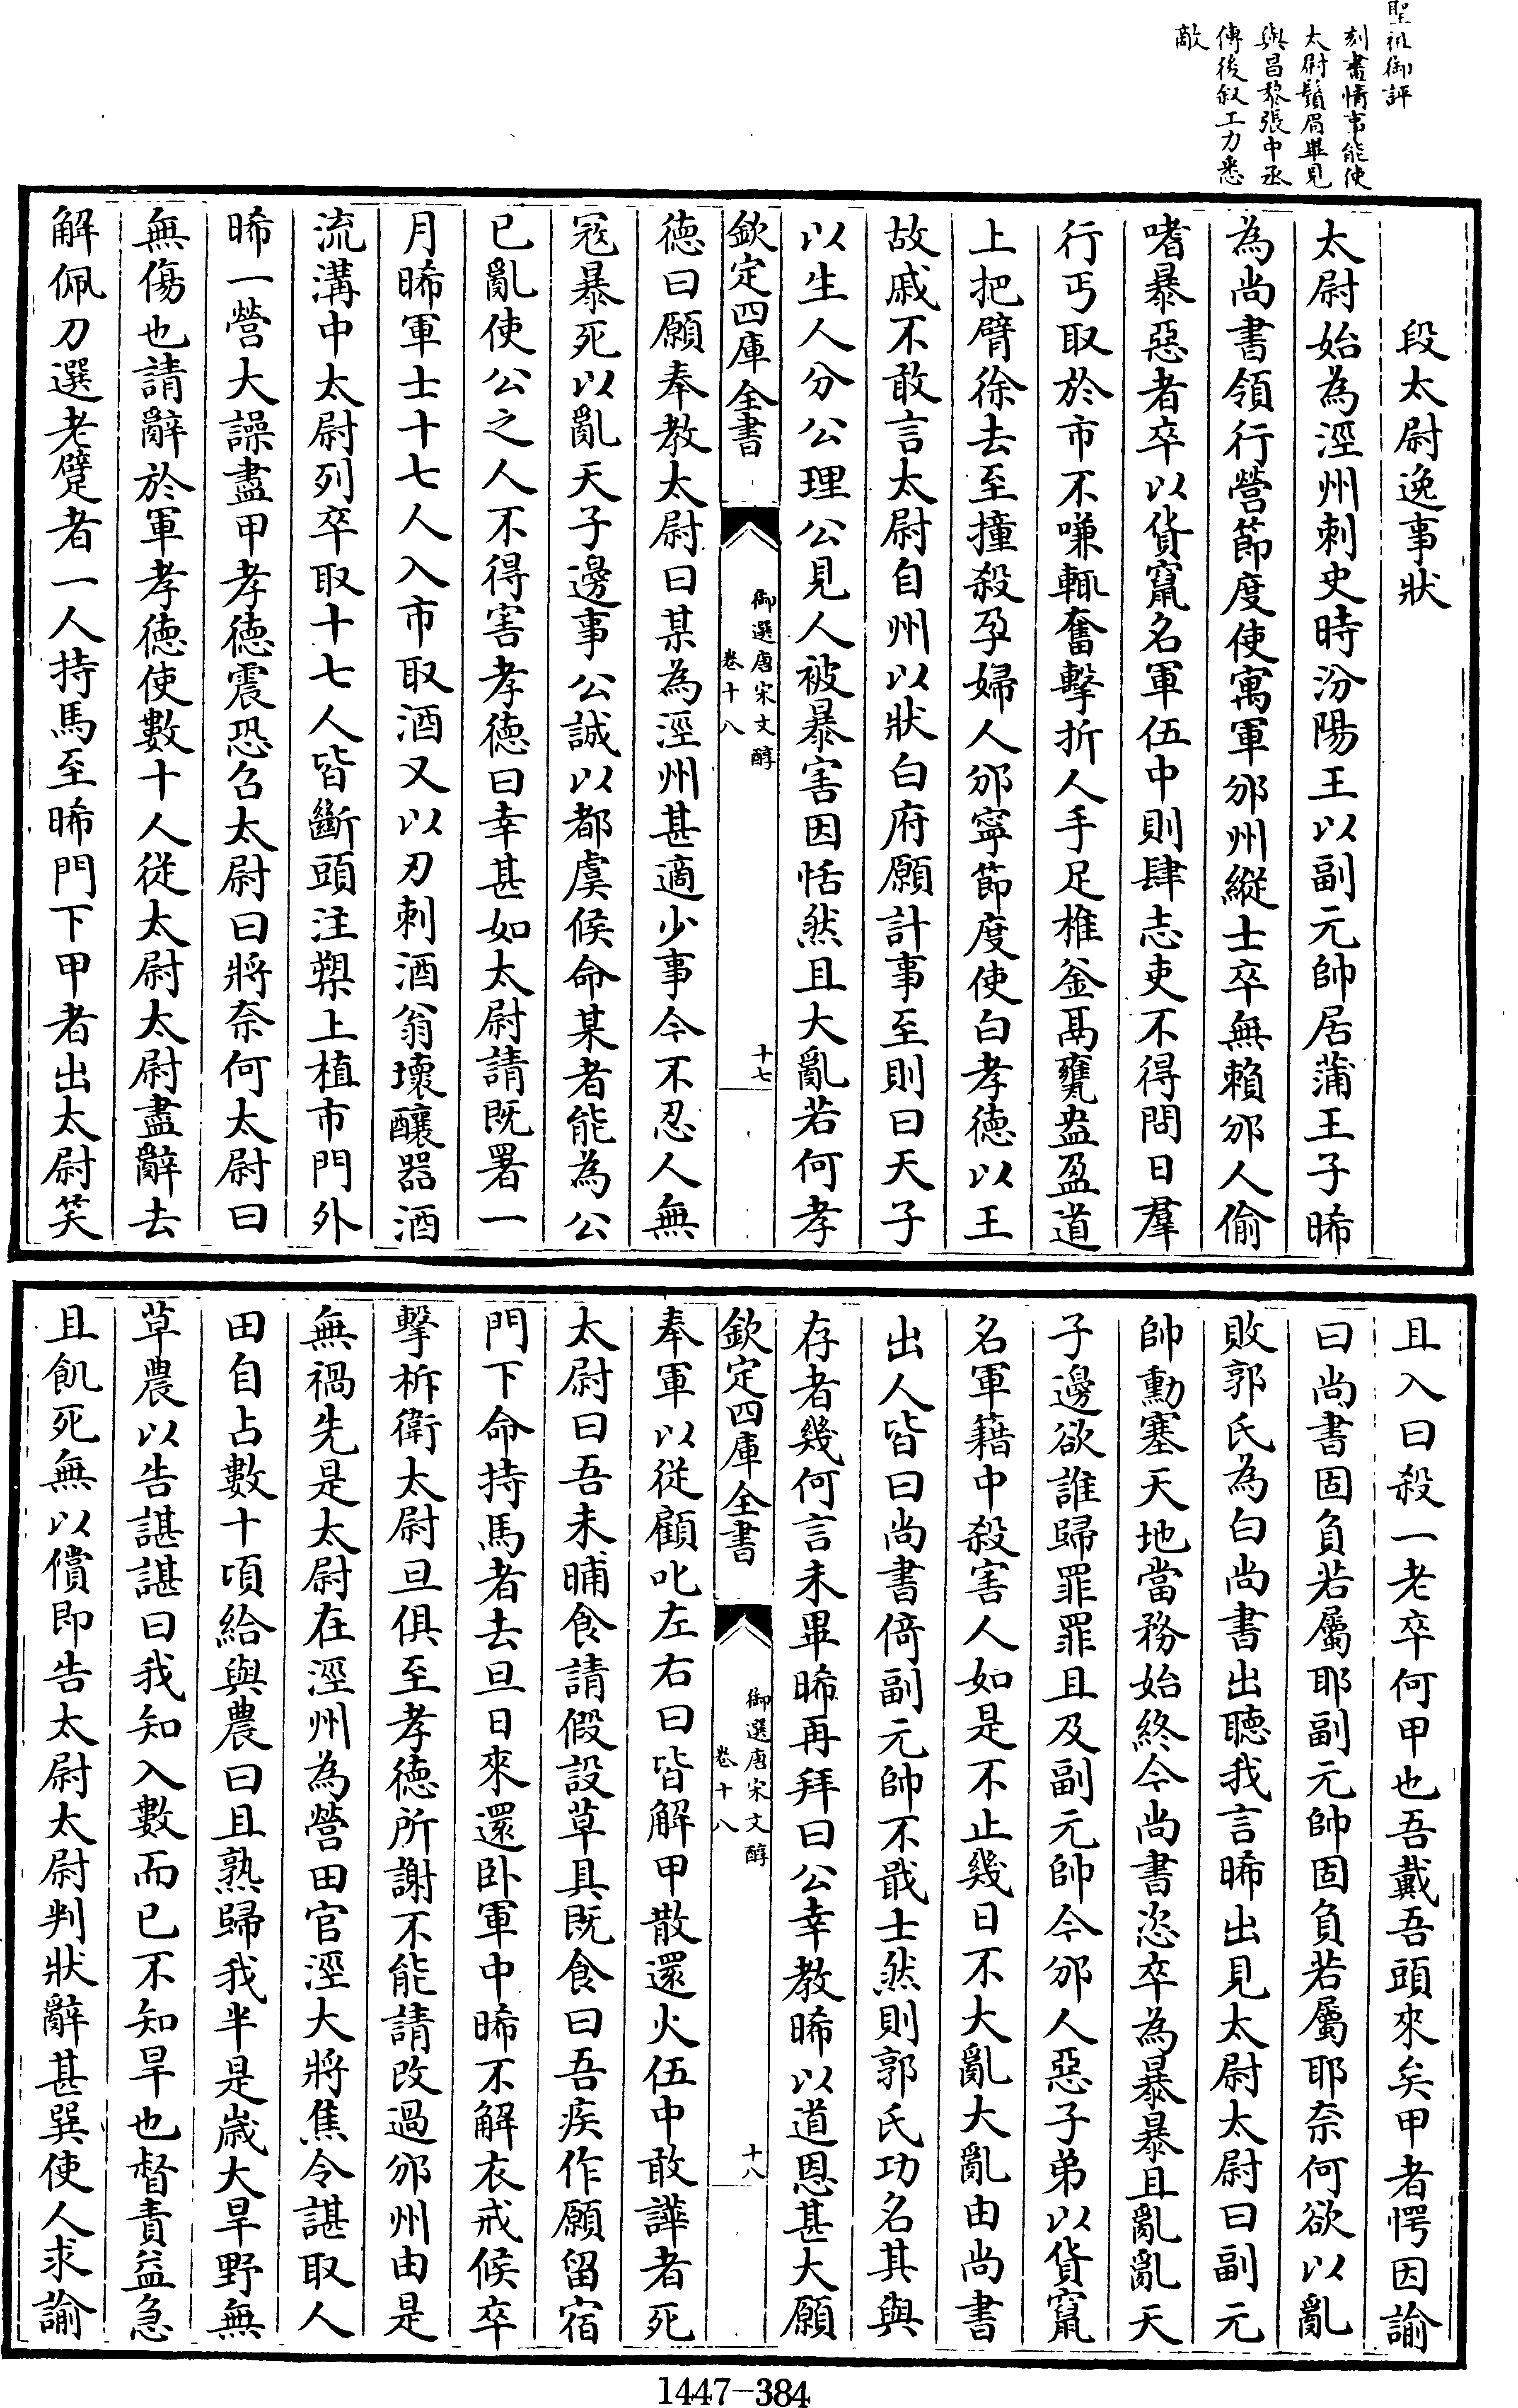 聖祖御評
刻畫情事能使
太尉鬚眉畢見
與昌黎張中丞
傳後叙工力悉
敵
段太尉逸事狀
太尉始為涇州刺史時汾陽王以副元帥居蒲王子晞
為尚書領行營節度使寓軍邠州縱士卒無賴邠人偷
嗜暴惡者卒以貨竄名軍伍中則肆志吏不得問日羣
行丐取於市不嗛輒奮擊折人手足椎釜鬲甕盎盈道
上把臂徐去至撞殺孕婦人邠寧節度使白孝德以王
故戚不敢言太尉自州以狀白府願計事至則曰天子
以生人分公理公見人被暴害因恬然且大亂若何孝
欽定四庫全書
御選唐宋文醇
卷十八
十七
德曰願奉教太尉曰某為涇州甚適少事今不忍人無
冦暴死以亂天子邊事公誠以都虞候命某者能為公
已亂使公之人不得害孝德曰幸甚如太尉請既署一
月晞軍士十七人入市取酒又以刃刺酒翁壞釀器酒
流溝中太尉列卒取十七人皆斷頭注槊上植市門外
晞一營大譟盡甲孝德震恐召太尉曰將奈何太尉曰
無傷也請辭於軍孝德使數十人從太尉太尉盡辭去
解佩刀選老躄者一人持馬至晞門下甲者出太尉笑
且入曰殺一老卒何甲也吾戴吾頭來矣甲者愕因諭
曰尚書固負若屬耶副元帥固負若屬耶奈何欲以亂
敗郭氏為白尚書出聽我言晞出見太尉太尉曰副元
帥勳塞天地當務始終今尚書恣卒為暴暴且亂亂天
子邊欲誰歸罪罪且及副元帥今邠人惡子弟以貨竄
名軍藉中殺害人如是不止幾日不大亂大亂由尚書
出人皆曰尚書倚副元帥不戢士然則郭氏功名其與
存者幾何言未畢晞再拜曰公幸教晞以道恩甚大願
欽定四庫全書
御選唐宋文醇
卷十八
十八
奉軍以從顧叱左右曰皆解甲散還火伍中敢譁者死
太尉曰吾未晡食請假設草具既食曰吾疾作願留宿
門下命持馬者去旦日來還卧軍中晞不解衣戒候卒
擊柝衛太尉旦俱至孝德所謝不能請改過邠州由是
無禍先是太尉在涇州為營田官涇大將焦令諶取人
田自占數十頃給與農曰且熟歸我半是歲大旱野無
草農以告諶諶曰我知入數而已不知旱也督責益急
且飢死無以償即告太尉太尉判狀辭甚巽使人求諭
1447-384